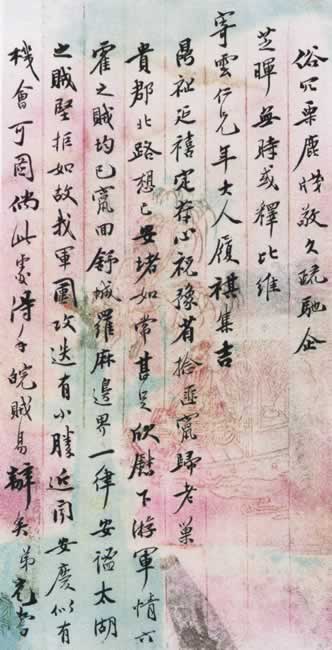 俗冗栗鹿牋敬久疏馳企
芝暉無時或釋比維
寄雲仁兄年大人履祺集吉
祉延禧定符心祝豫省捻匪竄歸老巢
貴郡北路想已安堵如常甚足欣慰下游軍情六
霍之賊均已竄回舒城羅麻邊界一律安謐太湖
之賊堅拒如故我軍圍攻迭有小勝近聞安慶似有
機會可圖倘此處得手皖賊易辦矣弟